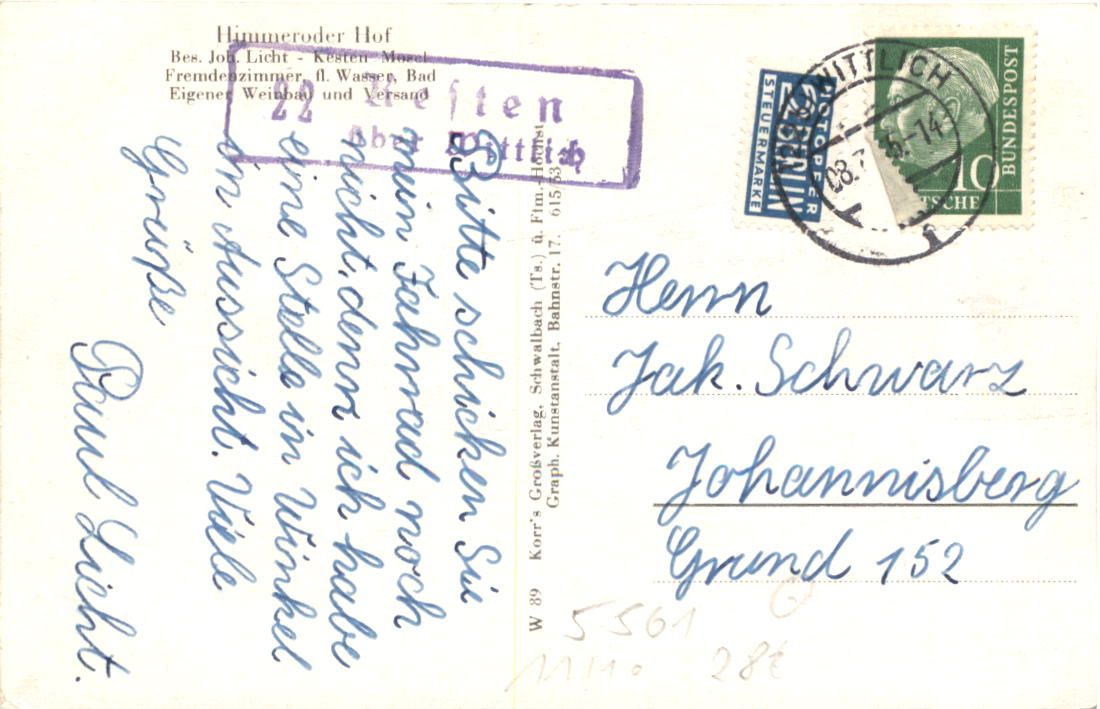 Himmeroder Hof
Bes. Joh. Licht - Kesten Mosel
Fremdenzimmer, fl. Wasser, Bad
Eigener Weinbau und Versand
22 Kesten
über Wittlich
Bitte schicken Sie
mein Fahrrad noch
nicht, denn ich habe
eine Stelle in Winkel
in Aussicht. Viele
Grüße
Paul Licht.
W 89 Korr's Großverlag, Schwalbach (Ts.) ü. Ffm.-Höchst
Graph. Kunstanstalt, Bahnstr. 17. 615/53
NOTOPFER
2 BERLIN
STEUERMARKE
WITTLICH
BUNDESPOST
10
Herrn
Jak. Schwarz
Johannisberg
Grund 152
5561